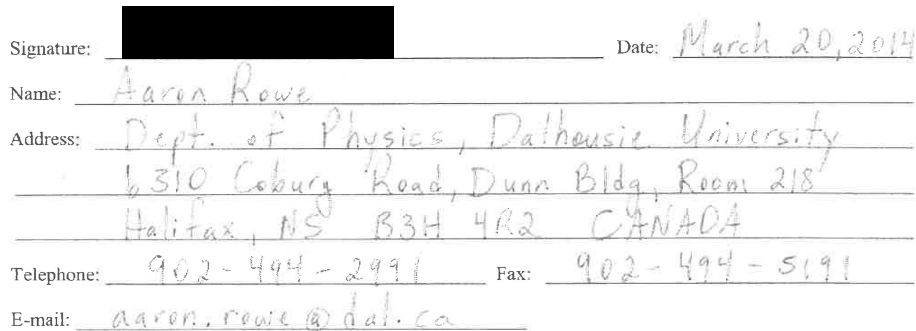 Signature: Date: March 20, 2014
Name: Aaron Rowe
Address: Dept. of Physics, Dalhousie University
6310 Coburg Road, Dunn Bldg, Room 218
Halifax, NS B3H 4R2 CANADA
Telephone: 902-494-2991 Fax: 902-494-5191
E-mail: aaron.rowe@dal.ca